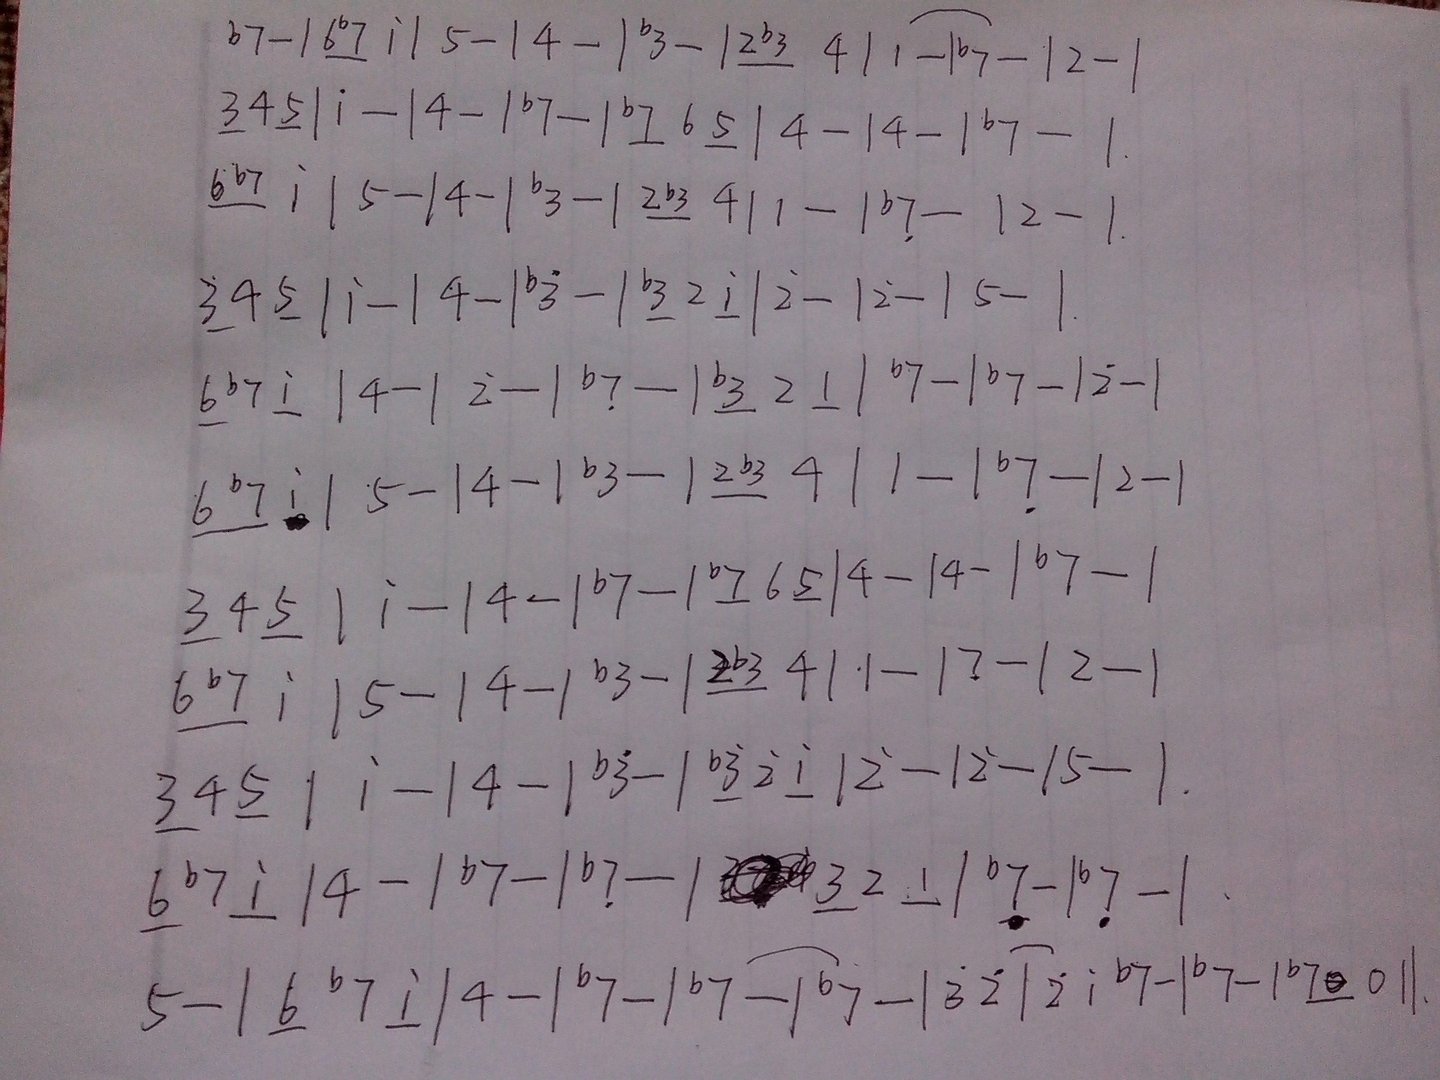 b7-|6b7 i|5-|4-|b3-|2b3 4|1-|b7-|2-|
345|i-|4-|b7-|b7 6 5|4-|4-|b7-|.
6b7 i|5-|4-|b3-|2b3 4|1-|b7-|2-|.
345|i-|4-|b3-|b3 2 i|2-|2-|5-|.
6b7 i|4-|2-|b7-|b3 2 1|b7-|b7-|2-|
6b7 i|5-|4-|b3-|2b3 4|1-|b7-|2-|
345|i-|4-|b7-|b7 6 5|4-|4-|b7-|
6b7 i|5-|4-|b3-|2b3 4|1-|7-|2-|
345|i-|4-|b3-|b3 2 i|2-|2-|5-|.
6b7 i|4-|b7-|b7-|3 2 1|b7-|b7-|.
5-|6 b7 i|4-|b7-|b7-|b7-|3 2|2 i b7-|b7-|b7 0||.